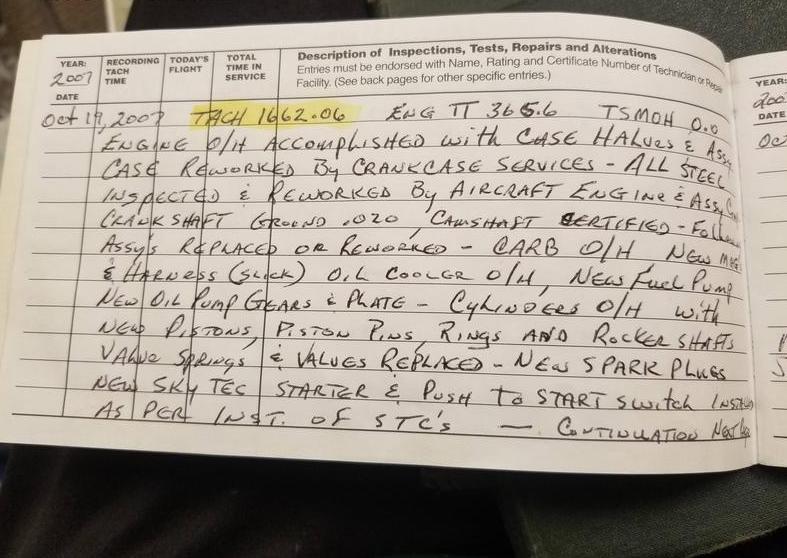 YEAR: RECORDING TACH TIME TODAY'S FLIGHT TOTAL TIME IN SERVICE Description of Inspections, Tests, Repairs and Alterations
2007 Entries must be endorsed with Name, Rating and Certificate Number of Technician or Repair
DATE Facility. (See back pages for other specific entries.)
Oct 19, 2007 TACH 1662.06 ENG TT 3655.6 TSMOH 0.0
ENGINE O/H ACCOMPLISHED with CASE HALVES & Assy
CASE REWORKED By CRANKCASE SERVICES - ALL STEEL
INSPECTED & REWORKED By AIRCRAFT ENGINE & Assy
CRANKSHAFT GROUND .020, CAMSHAFT CERTIFIED -
Assy's REPLACED OR REWORKED - CARB O/H NEW MAG
& HARNESS (SLICK) OIL COOLER O/H, NEW Fuel Pump
NEW OIL Pump GEARS & PLATE - CYLINDERS O/H with
NEW PISTONS, PISTON PINS, RINGS AND ROCKER SHAFTS
VALVE SPRINGS & VALVES REPLACED - NEW SPARK PLUGS
NEW SKY TEC STARTER & PUSH to START switch
AS PER INST. OF STC's — CONTINUATION NEXT
YEAR:
200
DATE
Oc